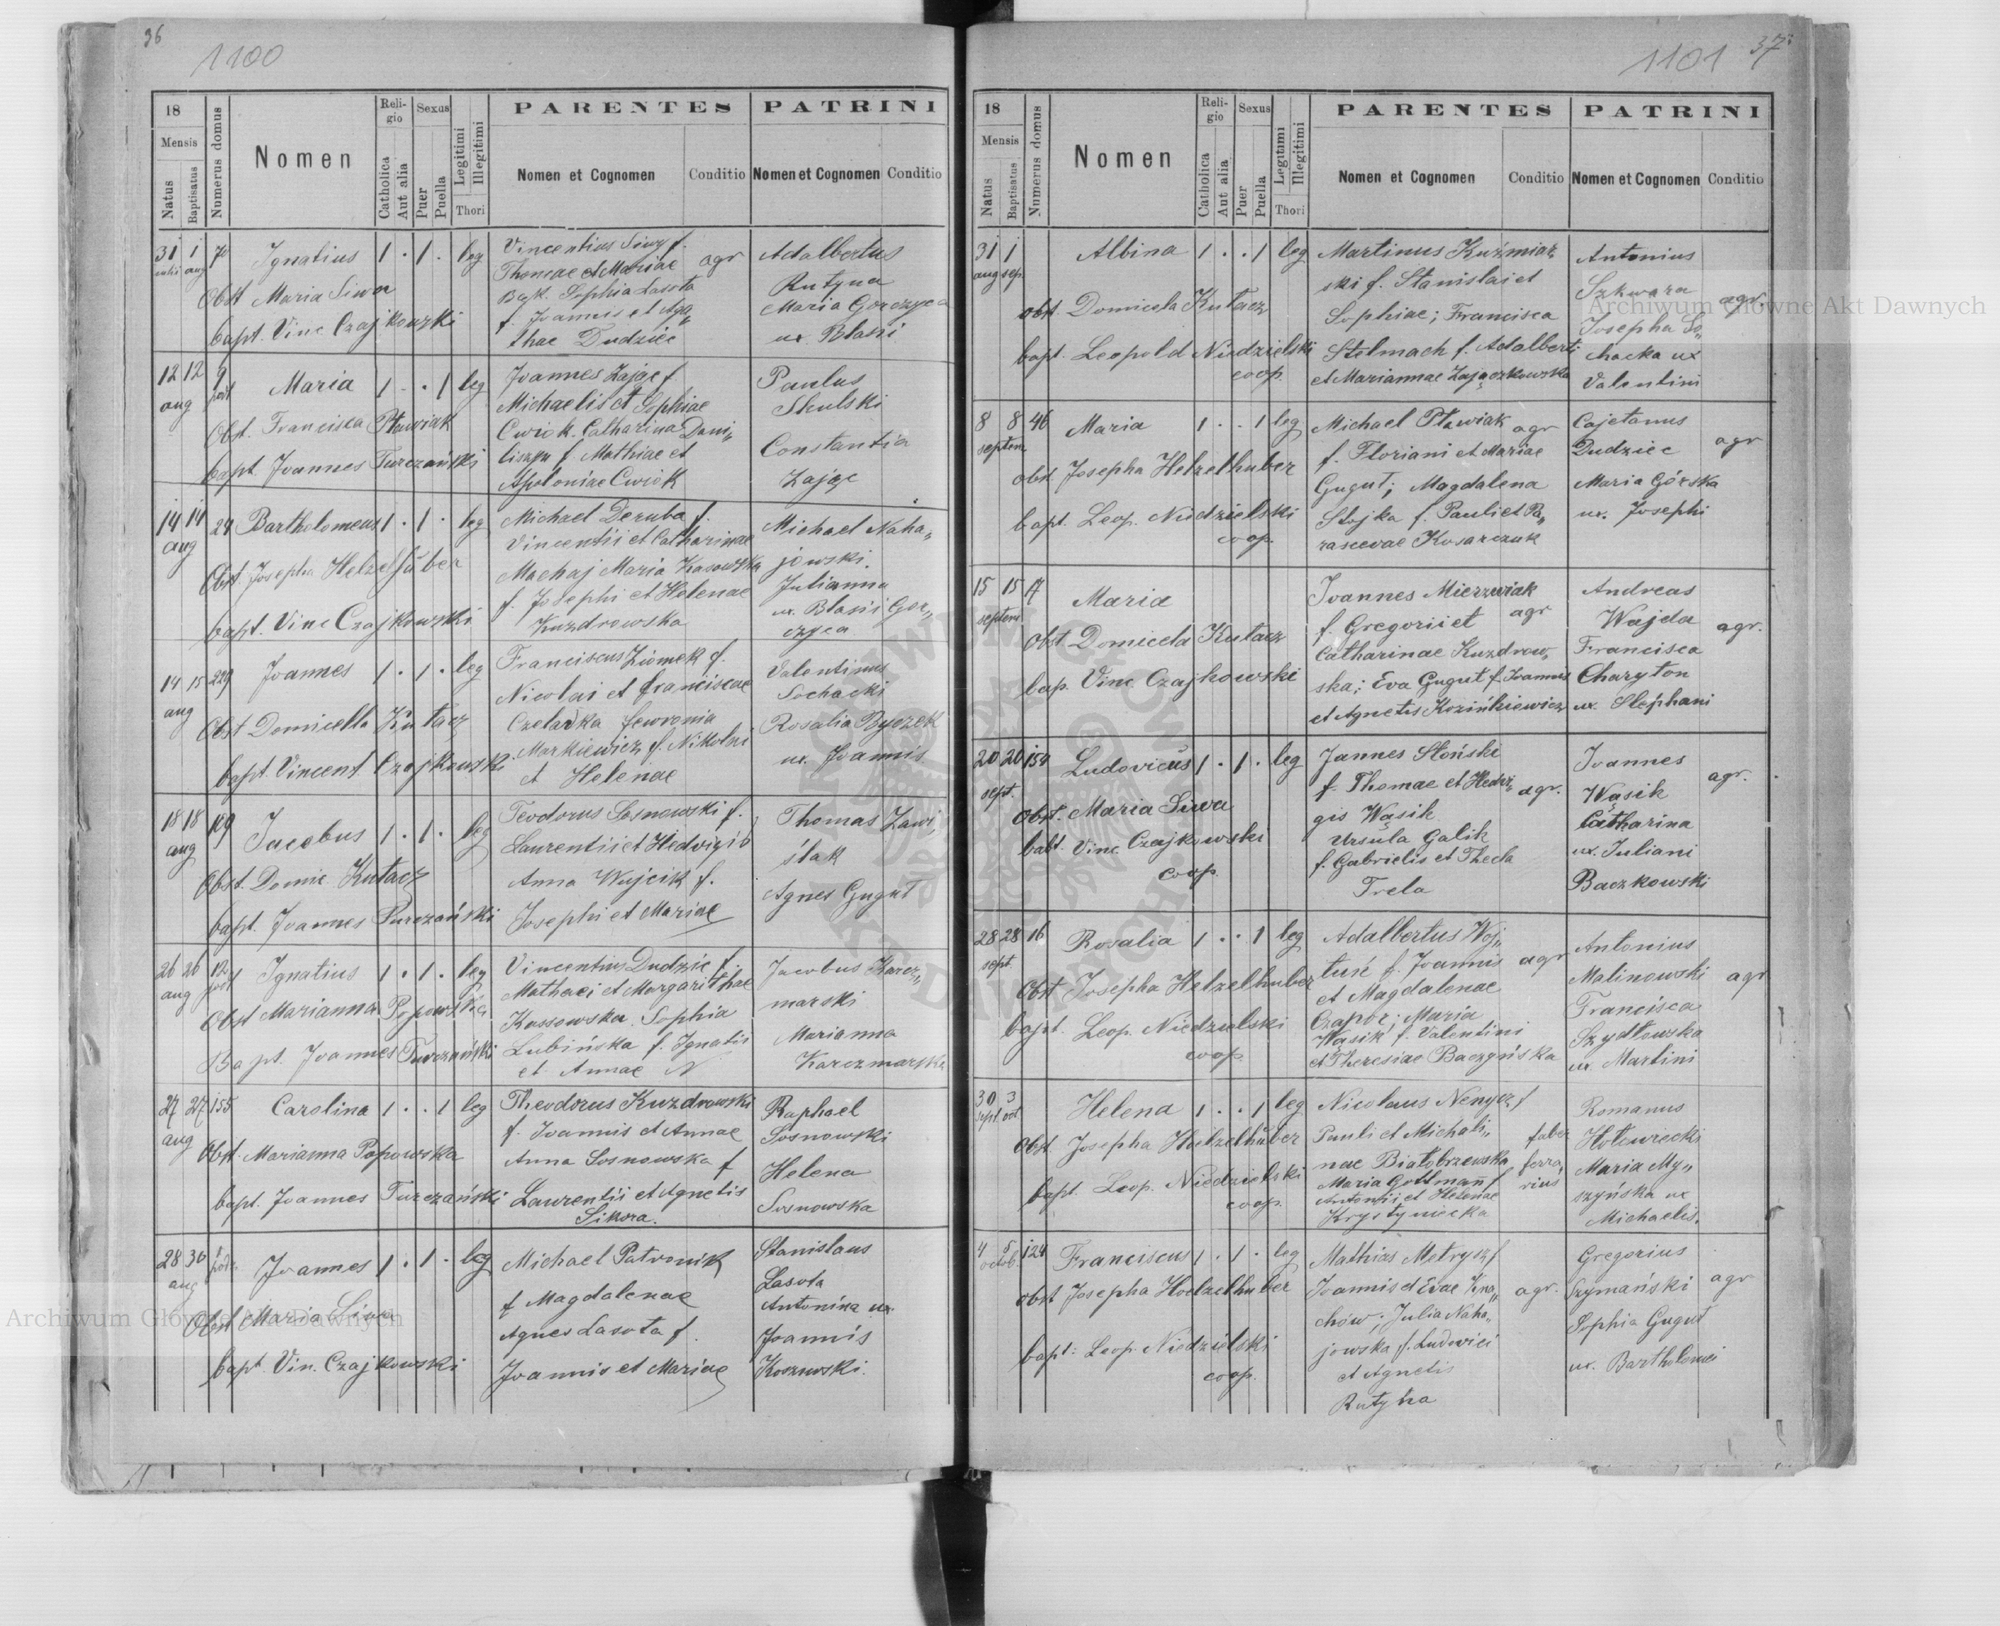 36
1100
18
Mensis
Natus
Baptisatus
Numerus domus
Nomen
Religio
Catholica
Aut alia
Sexus
Puer
Puella
Legitimi
Illegitimi
Thori
PARENTES
Nomen et Cognomen
Conditio
PATRINI
Nomen et Cognomen
Conditio
31 1 70 Ignatius 1 · 1 · leg
aug
Obst Maria Siwa
bapt. Vinc Czajkowski
Vincentius Siwy f.
Thomae et Mariae agr
Sophia Lasota
f. Joannis et Aga„
thae Dudziec
Adalbertus
Rutyna
Maria Gorczyca
ux Blasii
12 12 9 Maria 1 · · 1 leg
aug
Obst. Francisca Ptawiak
bapt. Joannes Turczański
Joannes Zając f
Michaelis et Sophiae
Cwiok. Catharina Dani„
liszyn f Mathiae et
Apoloniae Cwiok
Paulus
Skulski
Constantia
Zając
14 14 24 Bartholomeus 1 · 1 · leg
aug
Obst. Josepha Helzelhuber
bapt. Vinc Czajkowski
Michael Deruba f.
Vincentii et Catharinae
Machaj Maria Kasowska
f. Josephi et Helenae
Kuzdrowska
Michael Naha„
jowski.
Julianna
ux. Blasii Gor„
czyca
14 15 229 Joannes 1 · 1 · leg
aug
Obst Domicella Kutacz
bapt. Vincent Czajkowski
Franciscus Ziomek f.
Nicolai et Franciscae
Czeladka Fewronia
Markiewicz f. Nikolai
et Helenae
Valentinus
Sochacki
Rosalia Byczek
ux. Joannis
18 18 149 Jacobus 1 · 1 · leg
aug
Obst. Domic Kutacz
bapt. Joannes Turczański
Teodorus Sosnowski f.
Laurentii et Hedvigis
Anna Wujcik f.
Josephi et Mariae
Thomas Zawi„
ślak
Agnes Gugut
26 26 12 Ignatius 1 · 1 · leg
aug
Obst Marianna Popowska
Bapt. Joannes Turczański
Vincentius Dudzic f.
Mathaei et Margarithae
Kassowska. Sophia
Lubińska f. Ignatii
et Annae N
Jacobus Karcz„
marski
Marianna
Karczmarska
27 27 155 Carolina 1 · · 1 leg
aug
Obst. Marianna Popowska
bapt. Joannes Turczański
Theodorus Kuzdrowski
f. Joannis et Annae
Anna Sosnowska f
Laurentii et Agnetis
Sikora.
Raphael
Sosnowski
Helena
Sosnowska
28 30 Joannes 1 · 1 · leg
aug
Obst Maria Siwa
bapt Vin. Czajkowski
Michael Patronik
f Magdalenae
Agnes Lasota f.
Joannis et Mariae
Stanislaus
Lasota
Antonina ux.
Joannis
Koszowski.
37
1101
18
Mensis
Natus
Baptisatus
Numerus domus
Nomen
Religio
Catholica
Aut alia
Sexus
Puer
Puella
Legitimi
Illegitimi
Thori
PARENTES
Nomen et Cognomen
Conditio
PATRINI
Nomen et Cognomen
Conditio
31 1 Albina 1 · · 1 leg
aug sep.
obst. Domicela Kutacz
bapt. Leopold Niedzielski
coop.
Martinus Kuźmiar„
ski f. Stanislai et
Sophiae; Francisca
Stelmach f. Adalberti
et Mariannae Zajączkowska
Antonius
Szkwara agr.
Josepha So„
chacka ux
Valentini
8 8 46 Maria 1 · · 1 leg
septem.
obst Josepha Helzelhuber
bapt. Leop. Niedzielski
coop.
Michael Ptawiak agr
f. Floriani et Mariae
Gugut; Magdalena
Stojka f. Pauli et Pa„
rascevae Kosarczuk
Cajetanus
Dudziec agr
Maria Górska
ux. Josephi
15 15 17 Maria
septem.
obst Domicela Kutacz
bap. Vinc Czajkowski
Joannes Mierzwiak
f. Gregorii et agr
Catharinae Kuzdrow„
ska; Eva Gugut f. Joannis
et Agnetis Kozińkiewicz
Andreas
Wajda agr.
Francisca
Charyton
ux. Stephani
20 20 154 Ludovicus 1 · 1 · leg
sept.
obst. Maria Siwa
babt. Vinc. Czajkowski
coop.
Jannes Słoński
f. Thomae et Hedvi„ agr.
gis Wąsik
Ursula Galik
f. Gabrielis et Thecla
Trela
Joannes
Wąsik agr.
Catharina
ux. Juliani
Baczkowski
28 28 16 Rosalia 1 · · 1 leg
sept.
obst Josepha Helzelhuber
bapt. Leop. Niedzielski
coop.
Adalbertus Woj„
tuś f. Joannis agr
et Magdalenae
Czapor; Maria
Wąsik f. Valentini
et Theresiae Baczyńska
Antonius
Malinowski agr
Francisca
Szydłowska
ux. Martini
30 3 Helena 1 · · 1 leg
sept. oct
obst. Josepha Hoelzelhüber
bapt. Leop. Niedzielski
coop.
Nicolaus Nenycz f
Pauli et Michali„ faber
nae Białobrzewska ferra„
Maria Gottman f rius
Antonii et Helenae
Krystyniecka
Romanus
Hołowecki
Maria My„
szyńska ux
Michaelis.
4 5 124 Franciscus 1 · 1 · leg
octob.
obst Josepha Hoelzelhuber
bapt: Leop. Niedzielski
coop.
Mathias Metrysz f
Joannis et Evae Kna„ agr.
chów; Julia Naha„
jowska f. Ludovici
et Agnetis
Rutyna
Gregorius
Szymański agr
Sophia Gugut
ux. Bartholomei
Archiwum Główne Akt Dawnych
Archiwum Główne Akt Dawnych
ARCHIWUM GŁÓWNE AKT DAWNYCH